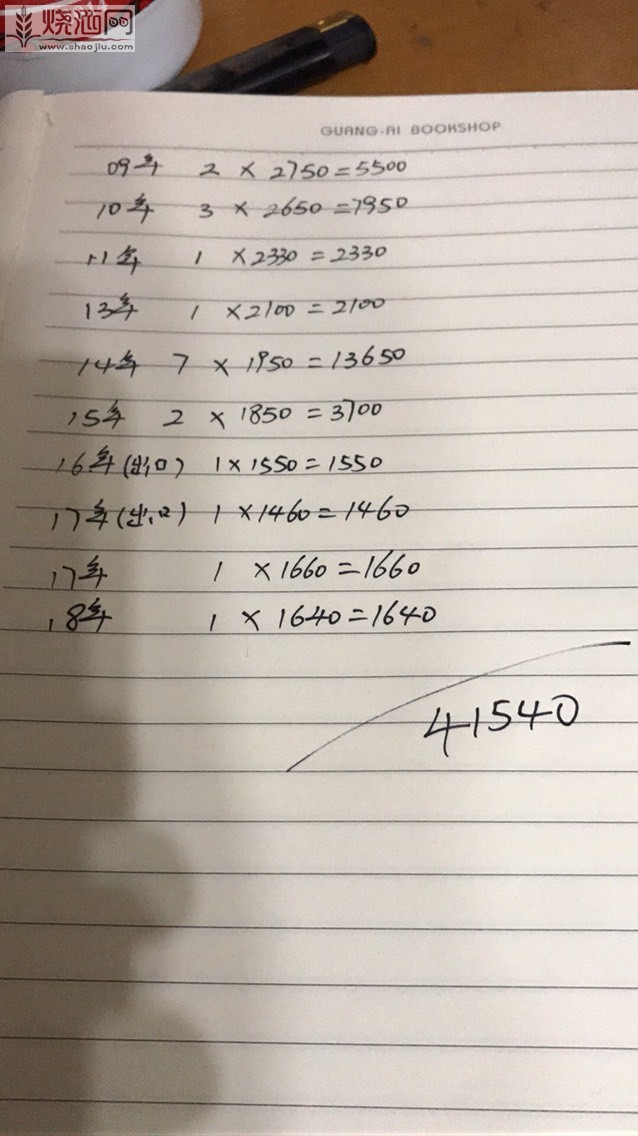 烧酒网
www.shaojiu.com
GUANG-AI BOOKSHOP
09年 2 × 2750=5500
10年 3 × 2650=7950
11年 1 ×2330=2330
13年 1 ×2100=2100
14年 7 × 1950=13650
15年 2 × 1850=3700
16年(出口) 1×1550=1550
17年(出口) 1×1460=1460
17年 1 ×1660=1660
18年 1 × 1640=1640
41540